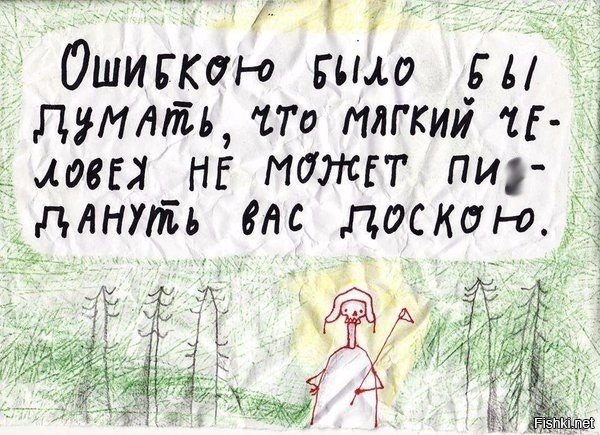 Ошибкою было бы
думать, что мягкий че-
ловек не может пи-
дануть вас доскою.
Fishki.net